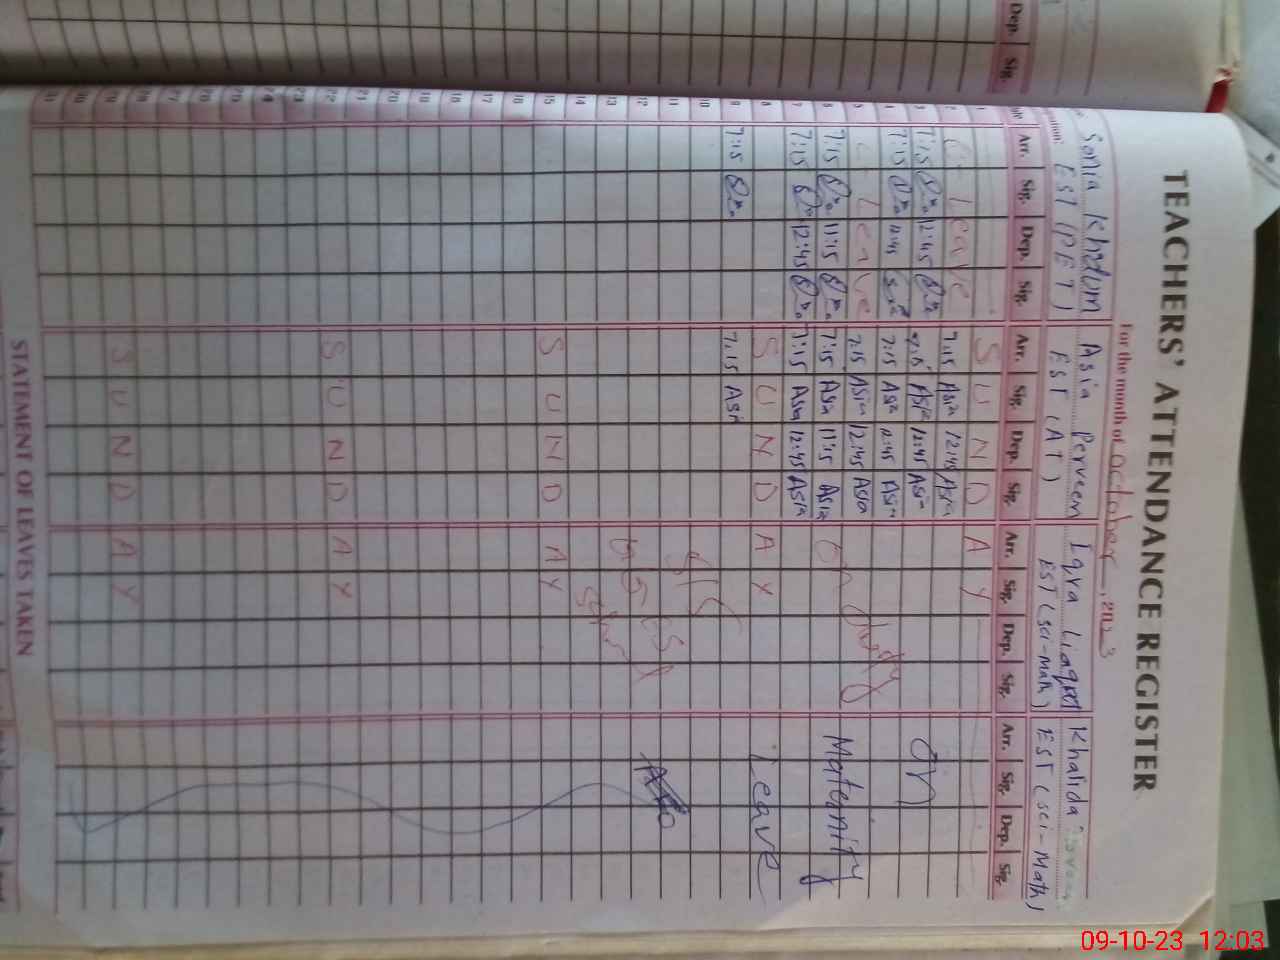 Dep. Sig.
TEACHERS' ATTENDANCE REGISTER
For the month of October, 2023
Sonia Khdum Asia Perveen Iqra Liaqat Khalida
EST (PET) EST (AT) EST (sci-Math) EST (sci-Math)
Arr. Sig. Dep. Sig. Arr. Sig. Dep. Sig. Arr. Sig. Dep. Sig. Arr. Sig. Dep. Sig.
1 S U N D A Y
2 Leave 7:15 Asia 12:45 Asia
3 7:15 12:45 7:15 Asia 12:45 Asia On
4 7:15 12:45 7:15 Asia 12:45 Asia
5 Leave 7:15 Asia 12:45 Asia
6 7:15 11:15 7:15 Asia 11:15 Asia on duty Maternity
7 7:15 12:45 7:15 Asia 12:45 Asia
8 S U N D A Y Leave
9 7:15 7:15 Asia
10
11
12
13
14
15 S U N D A Y
16
17
18
19
20
21
22 S U N D A Y
23
24
25
26
27
28
29 S U N D A Y
30
31
STATEMENT OF LEAVES TAKEN
09-10-23 12:03